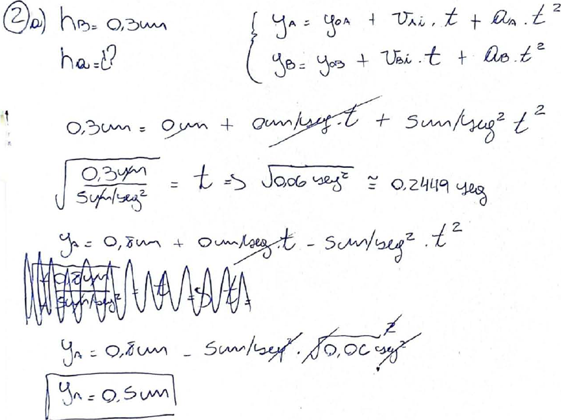 ② a) hB = 0,3um { yA = yoA + VAi . t + aA . t²
ha = ? yB = yoB + VBi . t + aB . t²
0,3um = 0um + 0um/seg . t + 5um/seg² t²
√(0,3um / 5um/seg²) = t => √0,06 seg² ≅ 0,2449 seg
yA = 0,8um + 0um/seg t - 5um/seg² . t²
yA = 0,8um - 5um/seg² . √0,06 seg² ²
yA = 0,5um